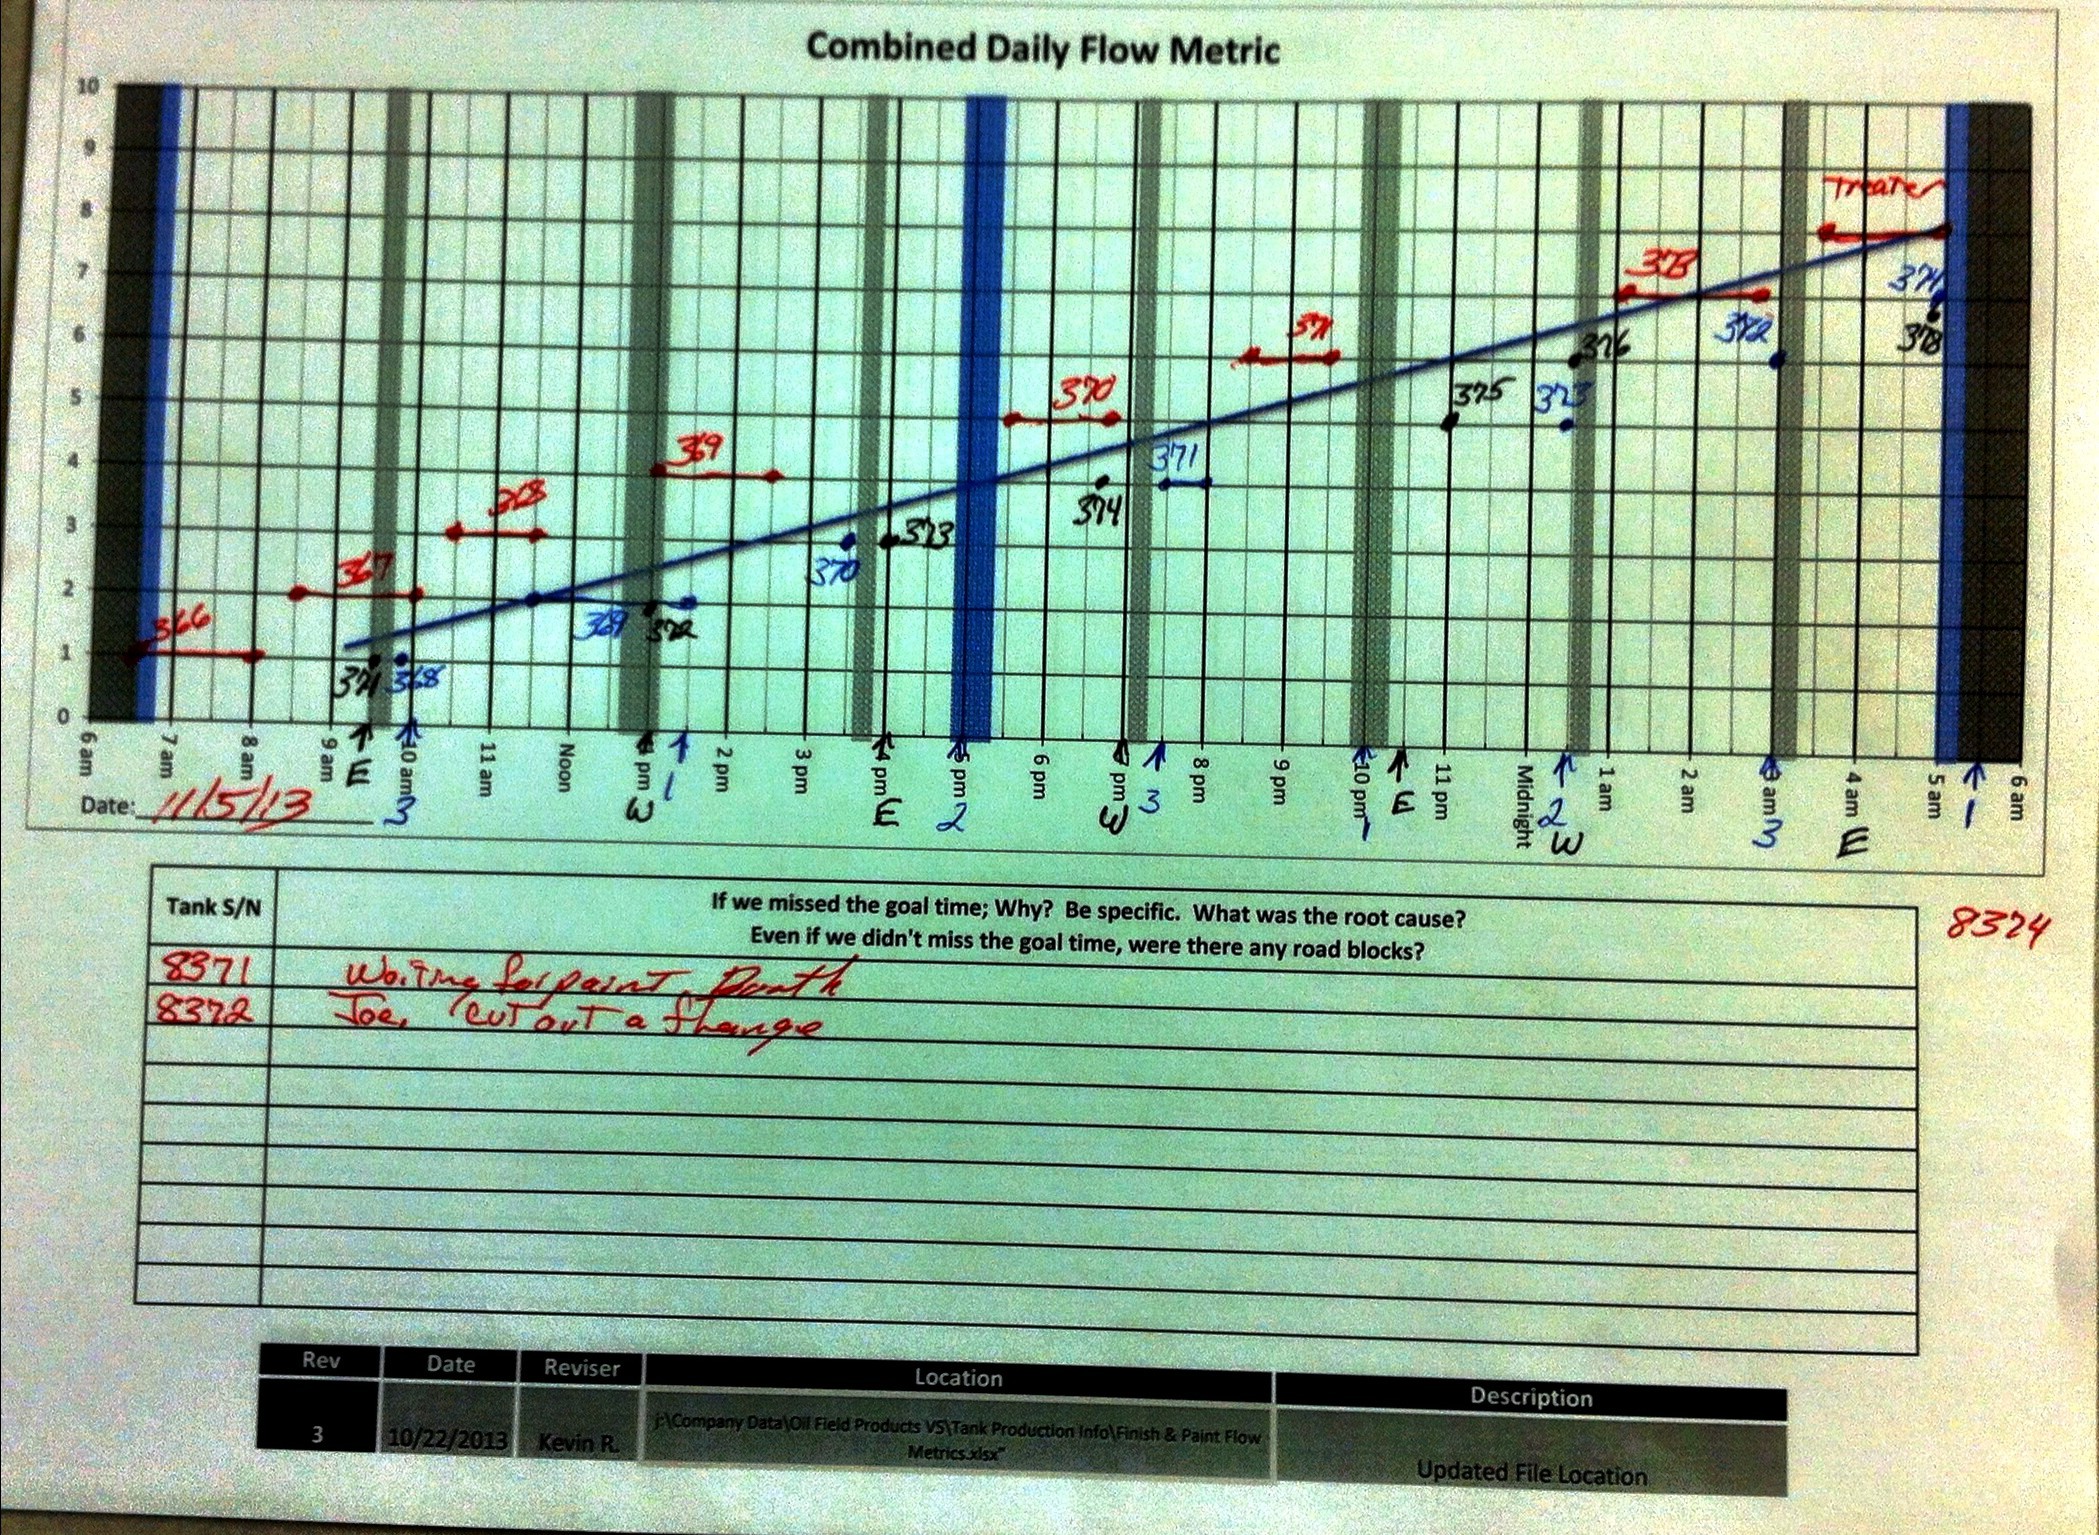 Combined Daily Flow Metric
10
9
8
7
6
5
4
3
2
1
0
Treater
373
374
372
378
371
376
370
375
373
369
371
368
374
373
370
367
366
369
372
371
368
6 am
7 am
8 am
9 am
10 am
11 am
Noon
1 pm
2 pm
3 pm
4 pm
5 pm
6 pm
7 pm
8 pm
9 pm
10 pm
11 pm
Midnight
1 am
2 am
3 am
4 am
5 am
6 am
E 3 W 1 E 2 W 3 1 E 2 W 3 E 1
Date: 11/5/13
Tank S/N
If we missed the goal time; Why? Be specific. What was the root cause?
Even if we didn't miss the goal time, were there any road blocks?
8374
8371 Waiting for paint.
8372 Joe, cut out a flange
Rev Date Reviser Location Description
3 10/22/2013 Kevin R. j:\Company Data\Oil Field Products VS\Tank Production Info\Finish & Paint Flow
Metrics.xlsx"
Updated File Location